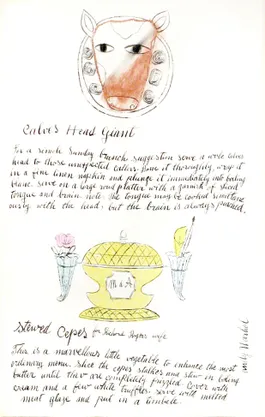 Calves Head Giant
For a simple Sunday brunch suggestion serve a whole calves
head to those unexpected callers. bone it thoroughly, wrap it
in a fine linen napkin and plunge it immediately into boiling
blanc. serve on a large oval platter with a garnish of sliced
tongue and brain. note the tongue may be cooked simultane
ously with the head; but the brain is always
M & A
Stewed Cepes for
This is a marvellous little vegetable to enhance the most
ordinary menu. Slice the cepes stalks and stew in boiling
butter until they are completely frizzled. Cover with
cream and a few white truffles. serve with melted
meat glaze and put in a timbale
Andy Warhol